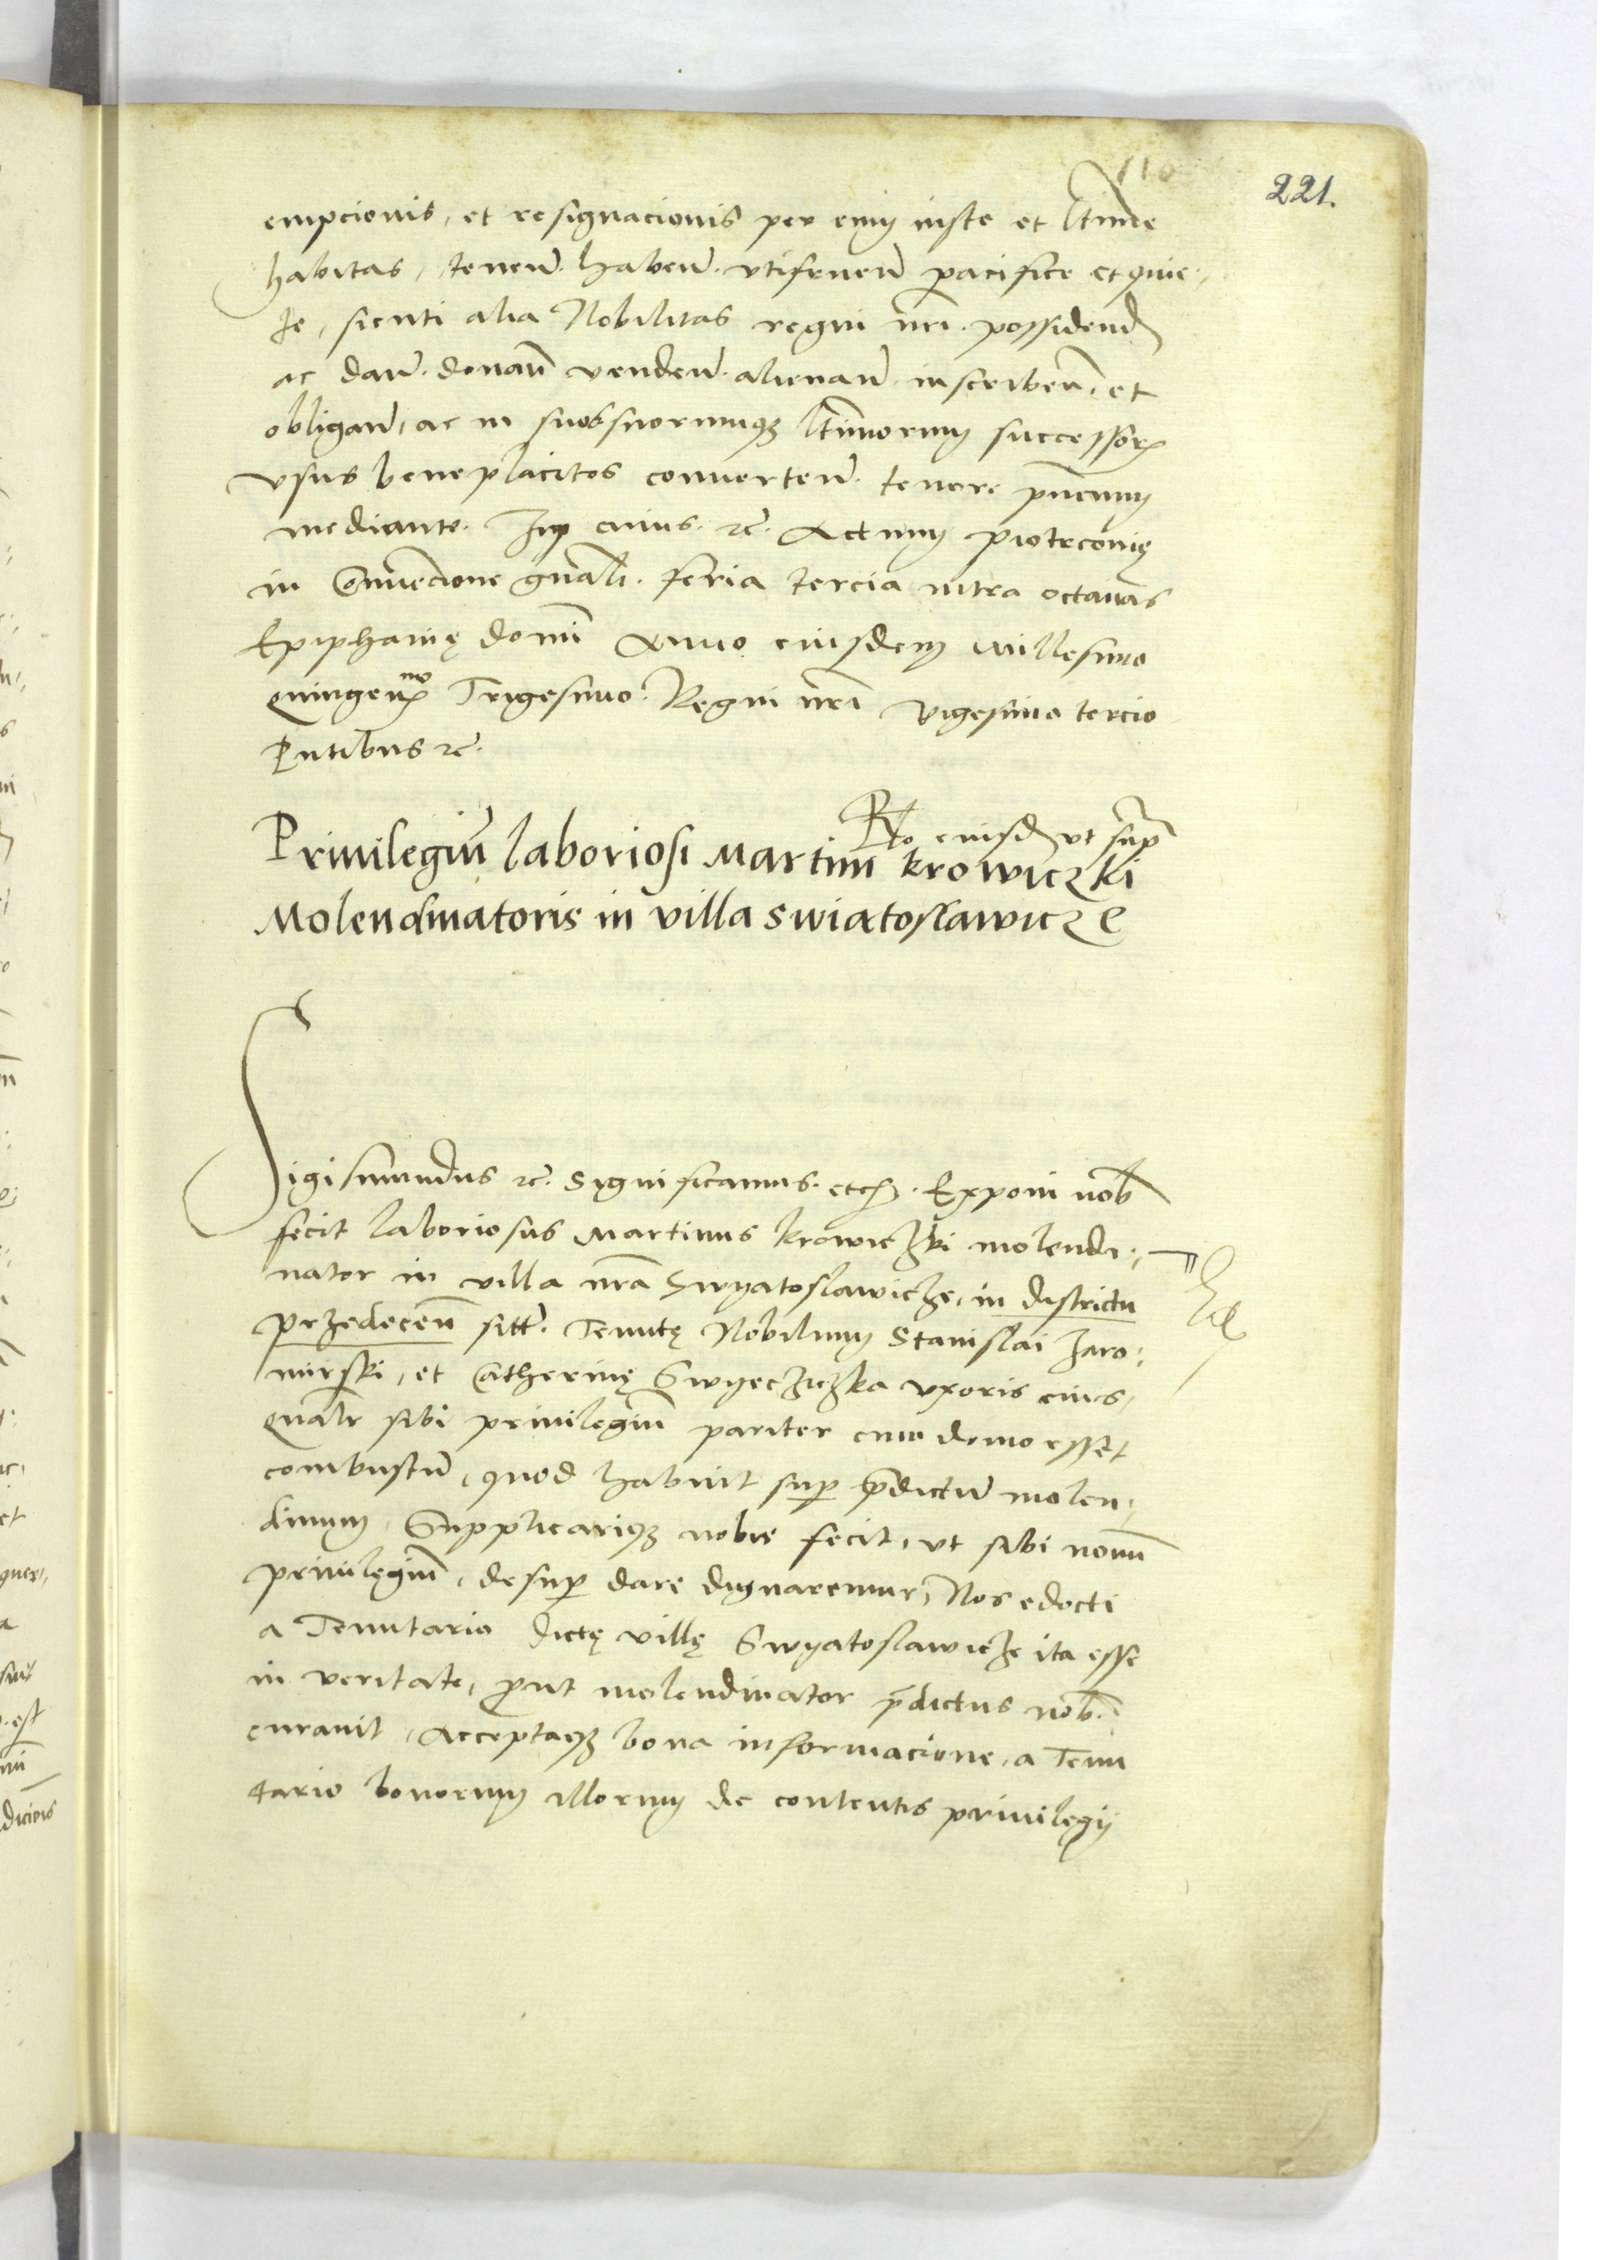 110
221.
empcionis, et resignacionis per eum iuste et ltime
habitas, tenen. haben. utifruen pacifice et quie,,
te, sicuti alia Nobilitas regni nri. possidend
ac dan. donan venden. alienan. inscriben. et
obligan, ac in suos suorumq3 ltimorum successor
vsus beneplacitos converten. tenore pntium
mediante. In cuius. rc. Actum piotrconię
in Convencione gnali. feria tercia intra octauas
Epiphanię domi Anno eiusdem millesimo
quingenmo Trigesimo. Regni nri vigesimo tercio
Pntibus rc.
Rlo eiusd vt sup
Priuilegiu laboriosi Martini krowiczki
Molendinatoris in villa swiatoslawicze
Sigismundus rc. Significamus. etc. Exponi nob
fecit laboriosus Martinus krowiczki molendi,,
nator in villa nra Swyatoslawicze, in districtu
przedecen sitt. Tenutę Nobilium Stanislai Jaro,,
mirski, et Catherinę Swyecziczka vxoris eius,
qualr sibi priuilegiu pariter cum domo esset
combustu, quod habuit sup pdictu molen,,
dinum, Supplicariq3 nobis fecit, vt sibi nouu
priuilegiu, desup dare dignaremur, Nos edocti
a Tenutario dictę villę Swyatoslawicze ita esse
in veritate, prout molendinator pdictus nob.
enravit, Acceptaq3 bona informacione, a Tenu
tario bonorum illorum de contentis priuilegij